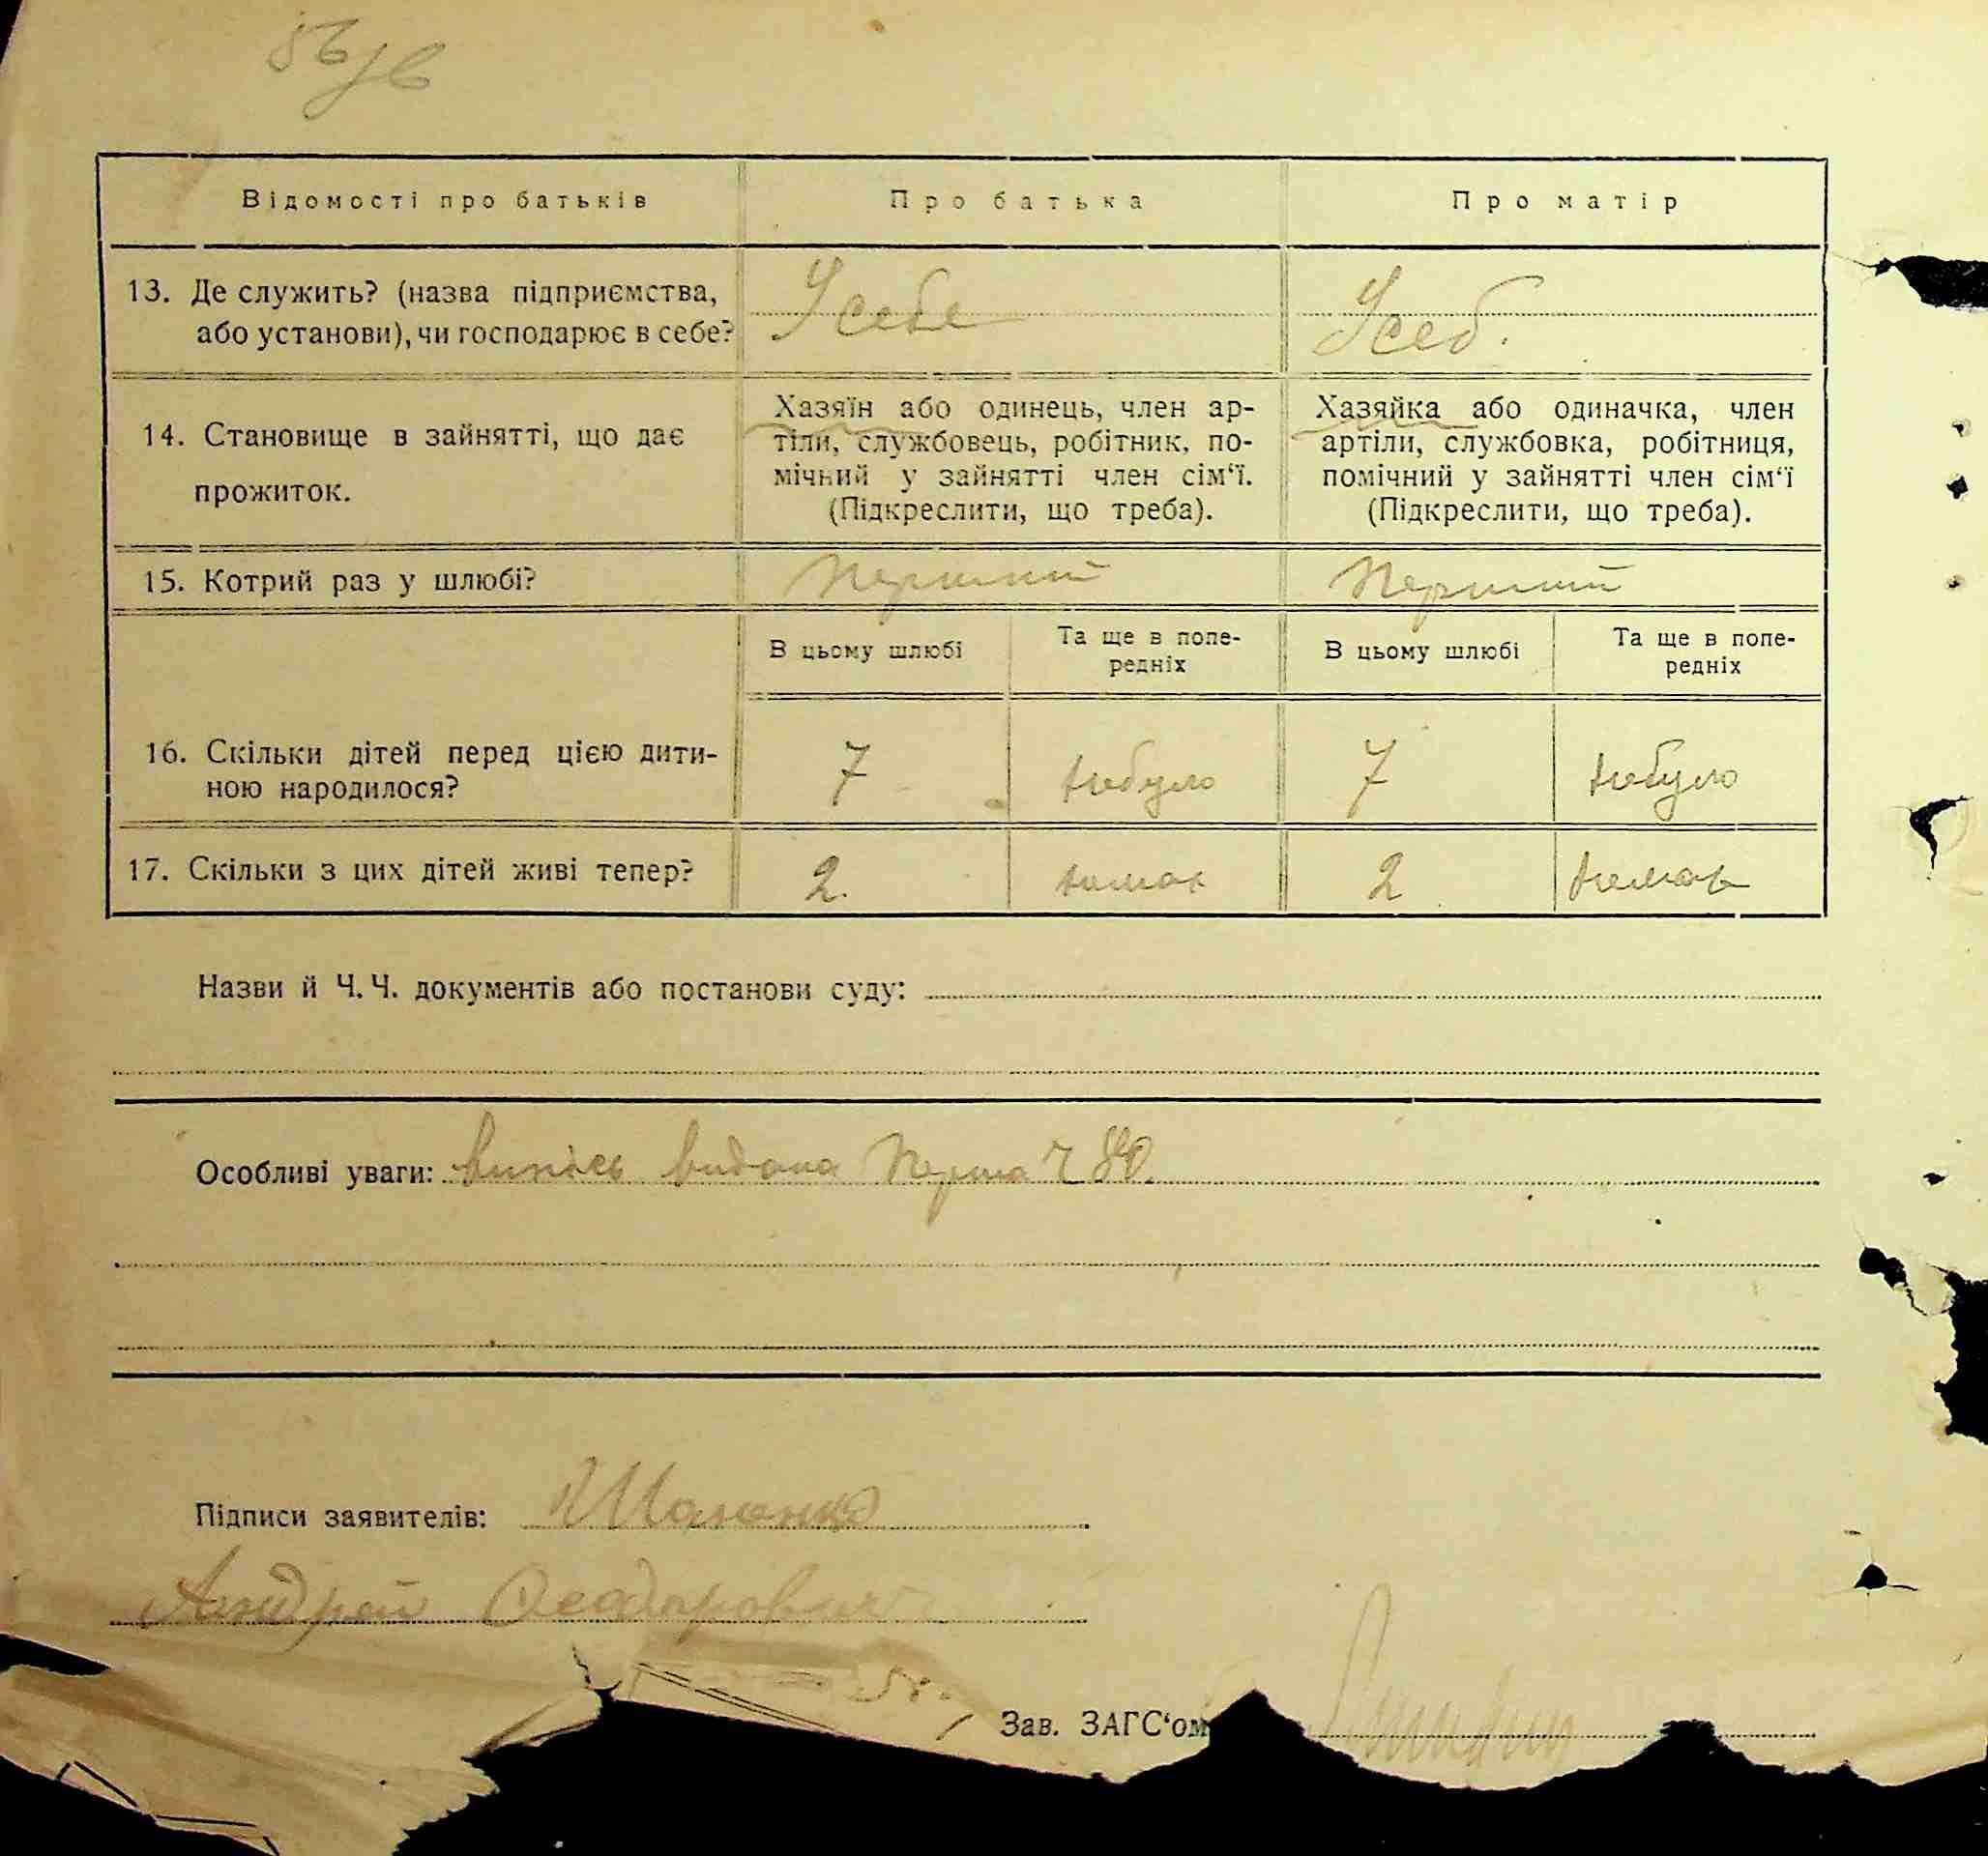 56/в
Відомості про батьків
Про батька
Про матір
13. Де служить? (назва підприємства,
або установи), чи господарює в себе?
У себе
У себ.
14. Становище в зайнятті, що дає
прожиток.
Хазяїн або одинець, член ар-
тіли, службовець, робітник, по-
мічний у зайнятті член сім‘ї.
(Підкреслити, що треба).
Хазяйка або одиначка, член
артіли, службовка, робітниця,
помічний у зайнятті член сім‘ї
(Підкреслити, що треба).
15. Котрий раз у шлюбі?
Перший
Перший
В цьому шлюбі
Та ще в попе-
редніх
В цьому шлюбі
Та ще в попе-
редніх
16. Скільки дітей перед цією дити-
ною народилося?
7
небуло
7
небуло
17. Скільки з цих дітей живі тепер?
2.
немає
2
немає
Назви й Ч. Ч. документів або постанови суду:
Особливі уваги: Випись видана Перша Ч 80.
Підписи заявителів:
Андрій Феадорович
Зав. ЗАГС‘ом